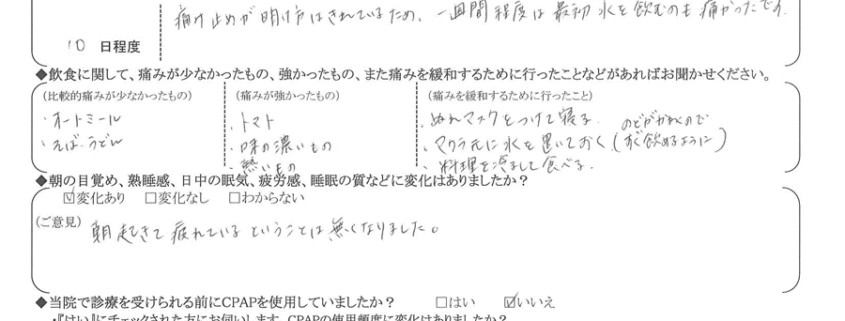 痛み止めが明け方はきれているため、一週間程度は最初水を飲むのも痛かったです.
10 日程度
◆飲食に関して、痛みが少なかったもの、強かったもの、また痛みを緩和するために行ったことなどがあればお聞かせください。
(比較的痛みが少なかったもの) (痛みが強かったもの) (痛みを緩和するために行ったこと)
・オートミール ・トマト ・ぬれマスクをつけて寝る. のどがかわくので
・そば.うどん ・味の濃いもの ・マクラ元に水を置いておく(すぐ飲めるように)
・熱いもの ・料理を冷まして食べる.
◆朝の目覚め、熟睡感、日中の眠気、疲労感、睡眠の質などに変化はありましたか?
☑変化あり □変化なし □わからない
(ご意見) 朝起きて疲れているということは無くなりました。
◆当院で診療を受けられる前にCPAPを使用していましたか? □はい ☑いいえ
・『はい』にチェックされた方にお伺いします。CPAPの使用頻度に変化はありましたか?